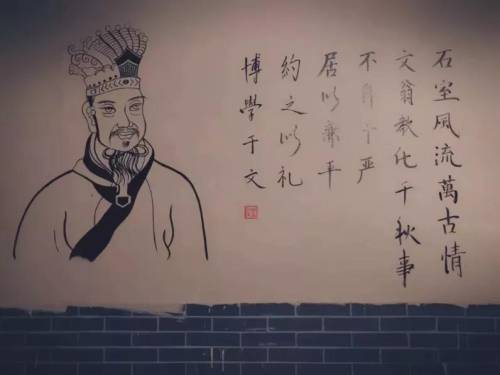 石室风流萬古情
文翁教化千秋事
不于严
居以廉平
約之以礼
博學于文